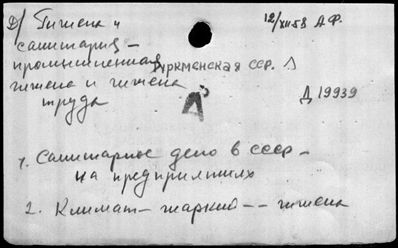 Д/ Гигиена и 12/XII58 А.Ф.
санитария -
промышленная Туркменская ССР. Л
гигиена и гигиена
труда Д 19939
Д
1. Санитарное дело в СССР -
на предприятиях
2. Климат - жаркий -- гигиена